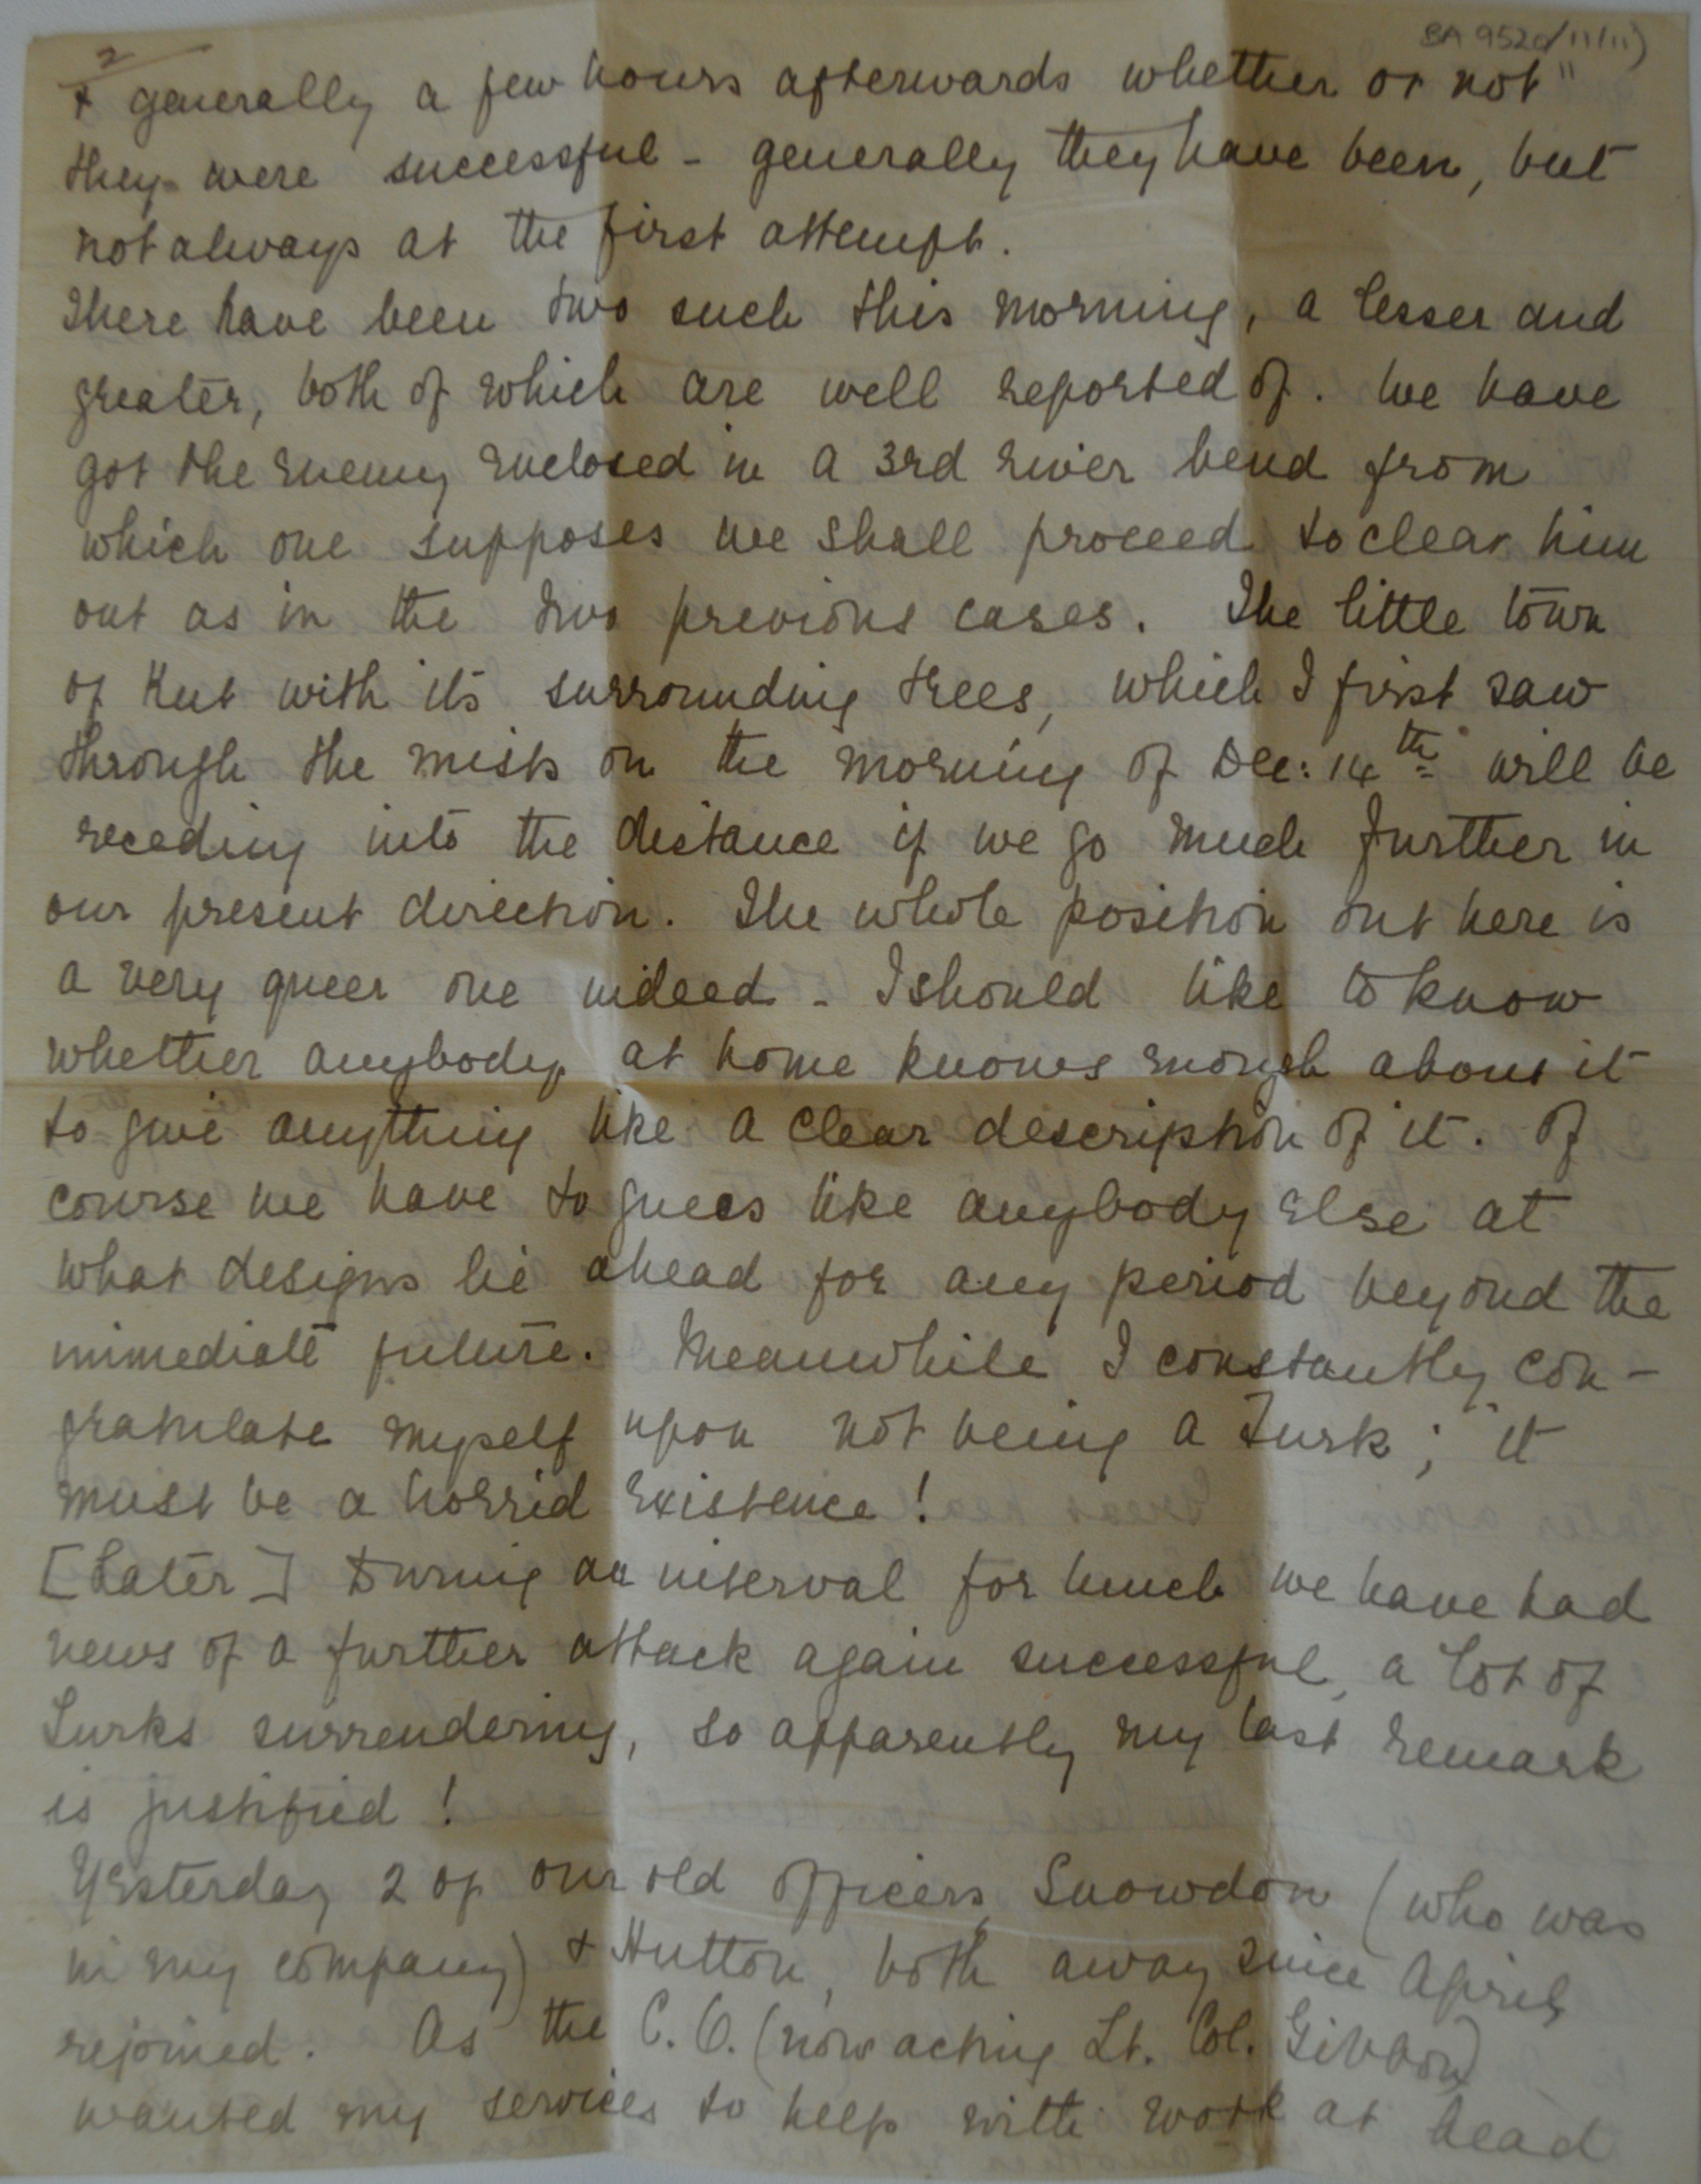 2
BA 9520/11/11)
& generally a few hours afterwards whether or not"
they were successful - generally they have been, but
not always at the first attempt.
There have been two such this morning, a lesser and
greater, both of which are well reported of. We have
got the enemy enclosed in a 3rd river bend from
which one supposes we shall proceed to clear him
out as in the two previous cases. The little town
of Kut with its surrounding trees, which I first saw
through the mists on the morning of Dec: 14th will be
receding into the distance if we go much further in
our present direction. The whole position out here is
a very queer one indeed - I should like to know
whether anybody at home knows enough about it
to give anything like a clear description of it. Of
course we have to guess like anybody else at
what designs lie ahead for any period beyond the
immediate future. Meanwhile I constantly con-
gratulate myself upon not being a Turk; it
must be a horrid existence!
[Later] During an interval for lunch we have had
news of a further attack again successful, a lot of
Turks surrendering, so apparently my last remark
is justified!
Yesterday 2 of our old officers, Snowdon (who was
in my company) & Hutton, both away since April,
rejoined. As the C.O. (now acting Lt. Col. Gibbon)
wanted my services to help with work at head